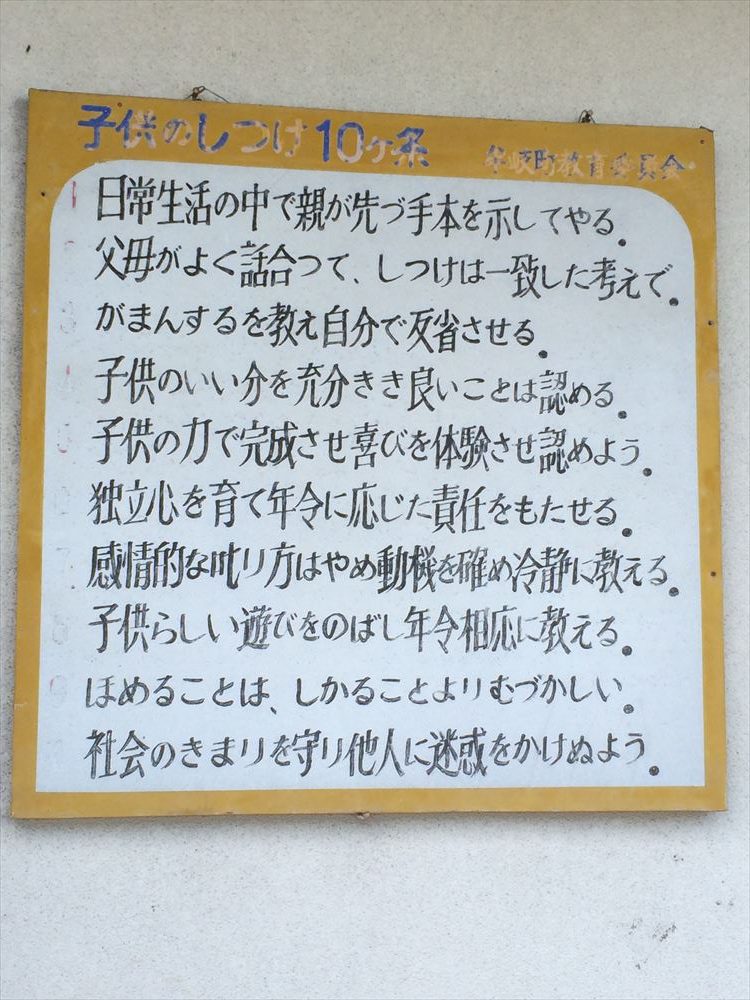 子供のしつけ10ヶ条 牟岐町教育委員会
1 日常生活の中で親が先づ手本を示してやる。
父母がよく話合つて、しつけは一致した考えで。
3 がまんするを教え自分で反省させる。
子供のいい分を充分きき良いことは認める。
子供の力で完成させ喜びを体験させ認めよう。
独立心を育て年令に応じた責任をもたせる。
感情的な叱り方はやめ動機を確め冷静に教える。
子供らしい遊びをのばし年令相応に教える。
9 ほめることは、しかることよりむづかしい。
社会のきまりを守り他人に迷惑をかけぬよう。